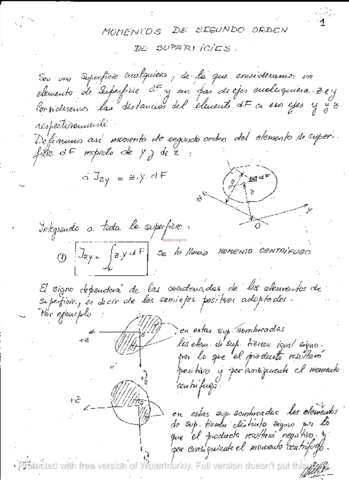 1
MOMENTOS DE SEGUNDO ORDEN
DE SUPERFICIES.
Sea una superficie cualquiera, de la que consideramos un
elemento de superficie dF y un par de ejes cualesquiera z e y
Consideremos las distancias del elemento dF a esos ejes y y z
respectivamente.
Definimos así momento de segundo orden del elemento de super-
ficie dF respecto de y y de z:
Jzy = z.y.dF
Integrando a toda la superficie:
① Jzy = ∫ z.y dF se lo llama MOMENTO CENTRIFUGO
F
El signo dependerá de las coordenadas de los elementos de
superficie, es decir de los semiejes positivos adoptados.
Por ejemplo:
en estas sup. sombreadas
los elem. de sup. tienen igual signo
por lo que el producto resultará
positivo y por consiguiente el momento
centrífugo.
en estas sup. sombreadas los elementos
de sup. tienen distinto signo por lo
que el producto resultará negativo y
por consiguiente el momento centrífugo.
Protected with free version of Watermarkly. Full version doesn't put this